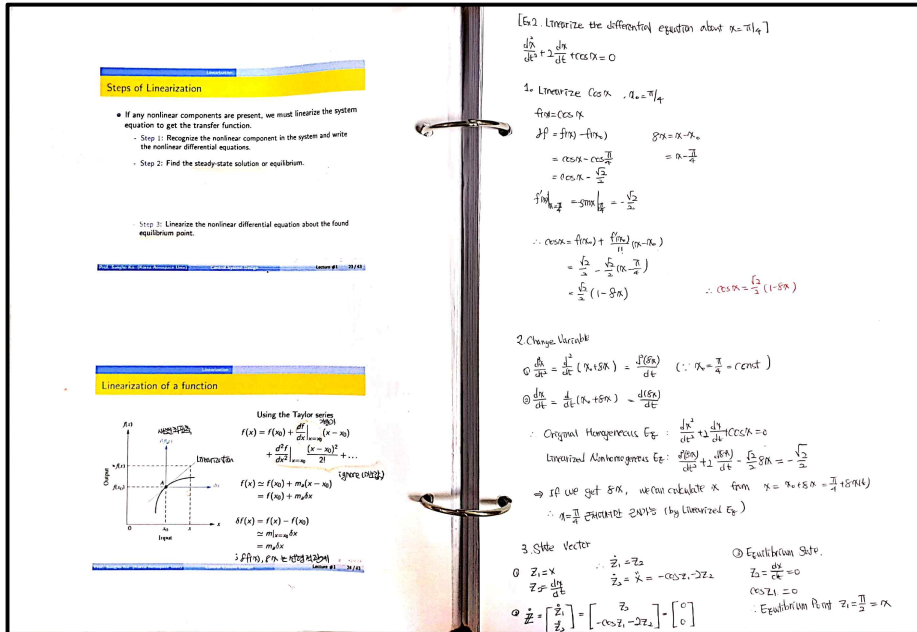 Linearization
Steps of Linearization
• If any nonlinear components are present, we must linearize the system
equation to get the transfer function.
- Step 1: Recognize the nonlinear component in the system and write
the nonlinear differential equations.
- Step 2: Find the steady-state solution or equilibrium.
- Step 3: Linearize the nonlinear differential equation about the found
equilibrium point.
Control System Design
Lecture #3 23/43
Linearization
Linearization of a function
Using the Taylor series
f(x) = f(x₀) + df/dx|ₓ₌ₓ₀ (x − x₀)
+ d²f/dx²|ₓ₌ₓ₀ (x − x₀)²/2! + ...
ignore
f(x) ≃ f(x₀) + mₐ(x − x₀)
= f(x₀) + mₐδx
δf(x) = f(x) − f(x₀)
≃ m|ₓ₌ₓ₀δx
= mₐδx
f(x)
Linearization
Output
f(x₀)
A
0
x₀
x
x
Input
Lecture #3 24/43
[Ex2. Linearize the differential equation about x=π/4]
d²x/dt² + 2 dx/dt + cosx = 0
1. Linearize Cosx, x₀=π/4
f(x)=cosx
δf = f(x) − f(x₀) δx = x−x₀
= cosx − cos π/4 = x − π/4
= cosx − √2/2
f'(x)|ₓ₌π/4 = −sinx|π/4 = −√2/2
∴ cosx = f(x₀) + f'(x₀)/1! (x−x₀)
= √2/2 − √2/2 (x − π/4)
= √2/2 (1−δx) ∴ cosx = √2/2 (1−δx)
2. Change Variable
① d²x/dt² = d²/dt² (x₀+δx) = d²(δx)/dt (∵ x₀ = π/4 = const)
② dx/dt = d/dt (x₀+δx) = d(δx)/dt
∴ Original Homogeneous Eq : dx²/dt² + 2 dx/dt + cosx = 0
Linearized Nonhomogeneous Eq : d²(δx)/dt² + 2 d(δx)/dt − √2/2 δx = −√2/2
⇒ If we get δx, we can calculate x from x = x₀+δx = π/4 + δx(t)
∴ x = π/4 근처에서만 근사가능 (by Linearized Eq.)
3. State Vector
① Z₁ = x ∴ Ż₁ = Z₂
Z₂ = dx/dt Ż₂ = ẍ = −cosZ₁ −2Z₂
② Ż = [Ż₁ Ż₂] = [Z₂ −cosZ₁ −2Z₂] = [0 0]
③ Equilibrium State.
Z₂ = dx/dt = 0
cosZ₁ = 0
∴ Equilibrium Point Z₁ = π/2 = x